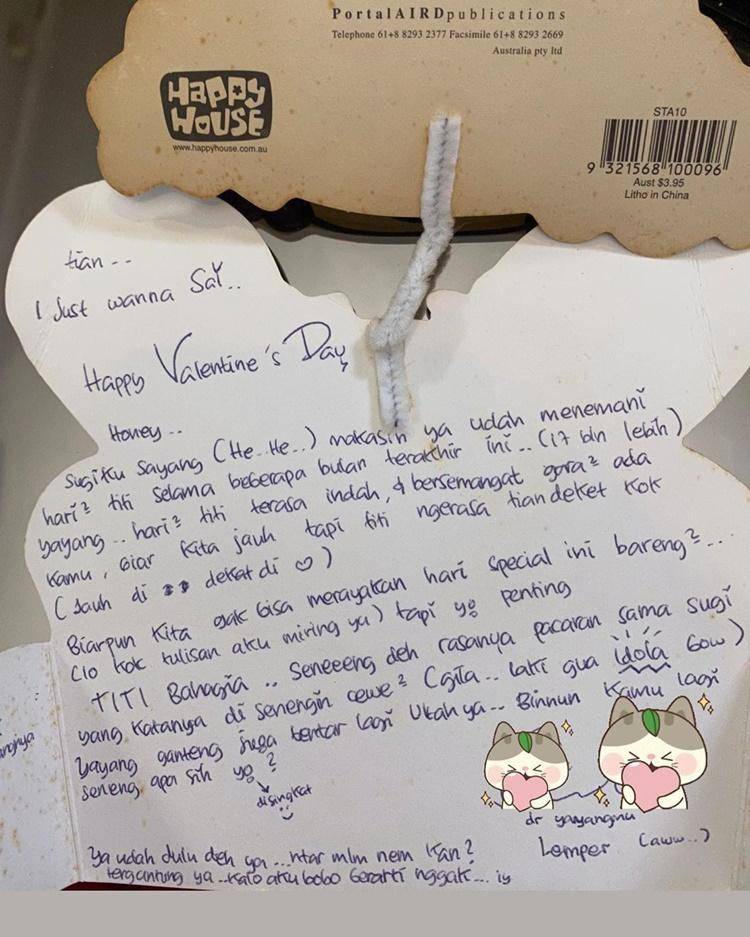 PortalAIRDpublications
Telephone 61+8 8293 2377 Facsimile 61+8 8293 2669
Australia pty ltd
HAPPY
HOUSE
www.happyhouse.com.au
STA10
9 321568 100096
Aust $3.95
Litho in China
tian --
I Just wanna Say..
Happy Valentine's Day,
Honey..
Sugiku Sayang (He..He..) makasih ya udah menemani
hari² titi selama beberapa bulan terakhir ini.. (17 bln lebih)
yayang.. hari² titi terasa indah, & bersemangat gara² ada
kamu, biar kita jauh tapi titi ngerasa tian deket kok
(Jauh di dekat di ♡)
Biarpun kita gak bisa merayakan hari special ini bareng²...
(lo kok tulisan aku miring ya) tapi yg penting
TITI Bahagia.. Seneeeng deh rasanya pacaran sama sugi
yang katanya di senengin cewe² (gila.. laki gua idola bow)
yayang ganteng juga bentar lagi ya.. Binnun kamu lagi
seneng apa sih yg ?
disingkat
dr yayangmu
Lemper (aww..)
Ya udah dulu deh ya ...ntar mlm nem kan?
tergantung ya..kalo aku bobo berarti nggak...